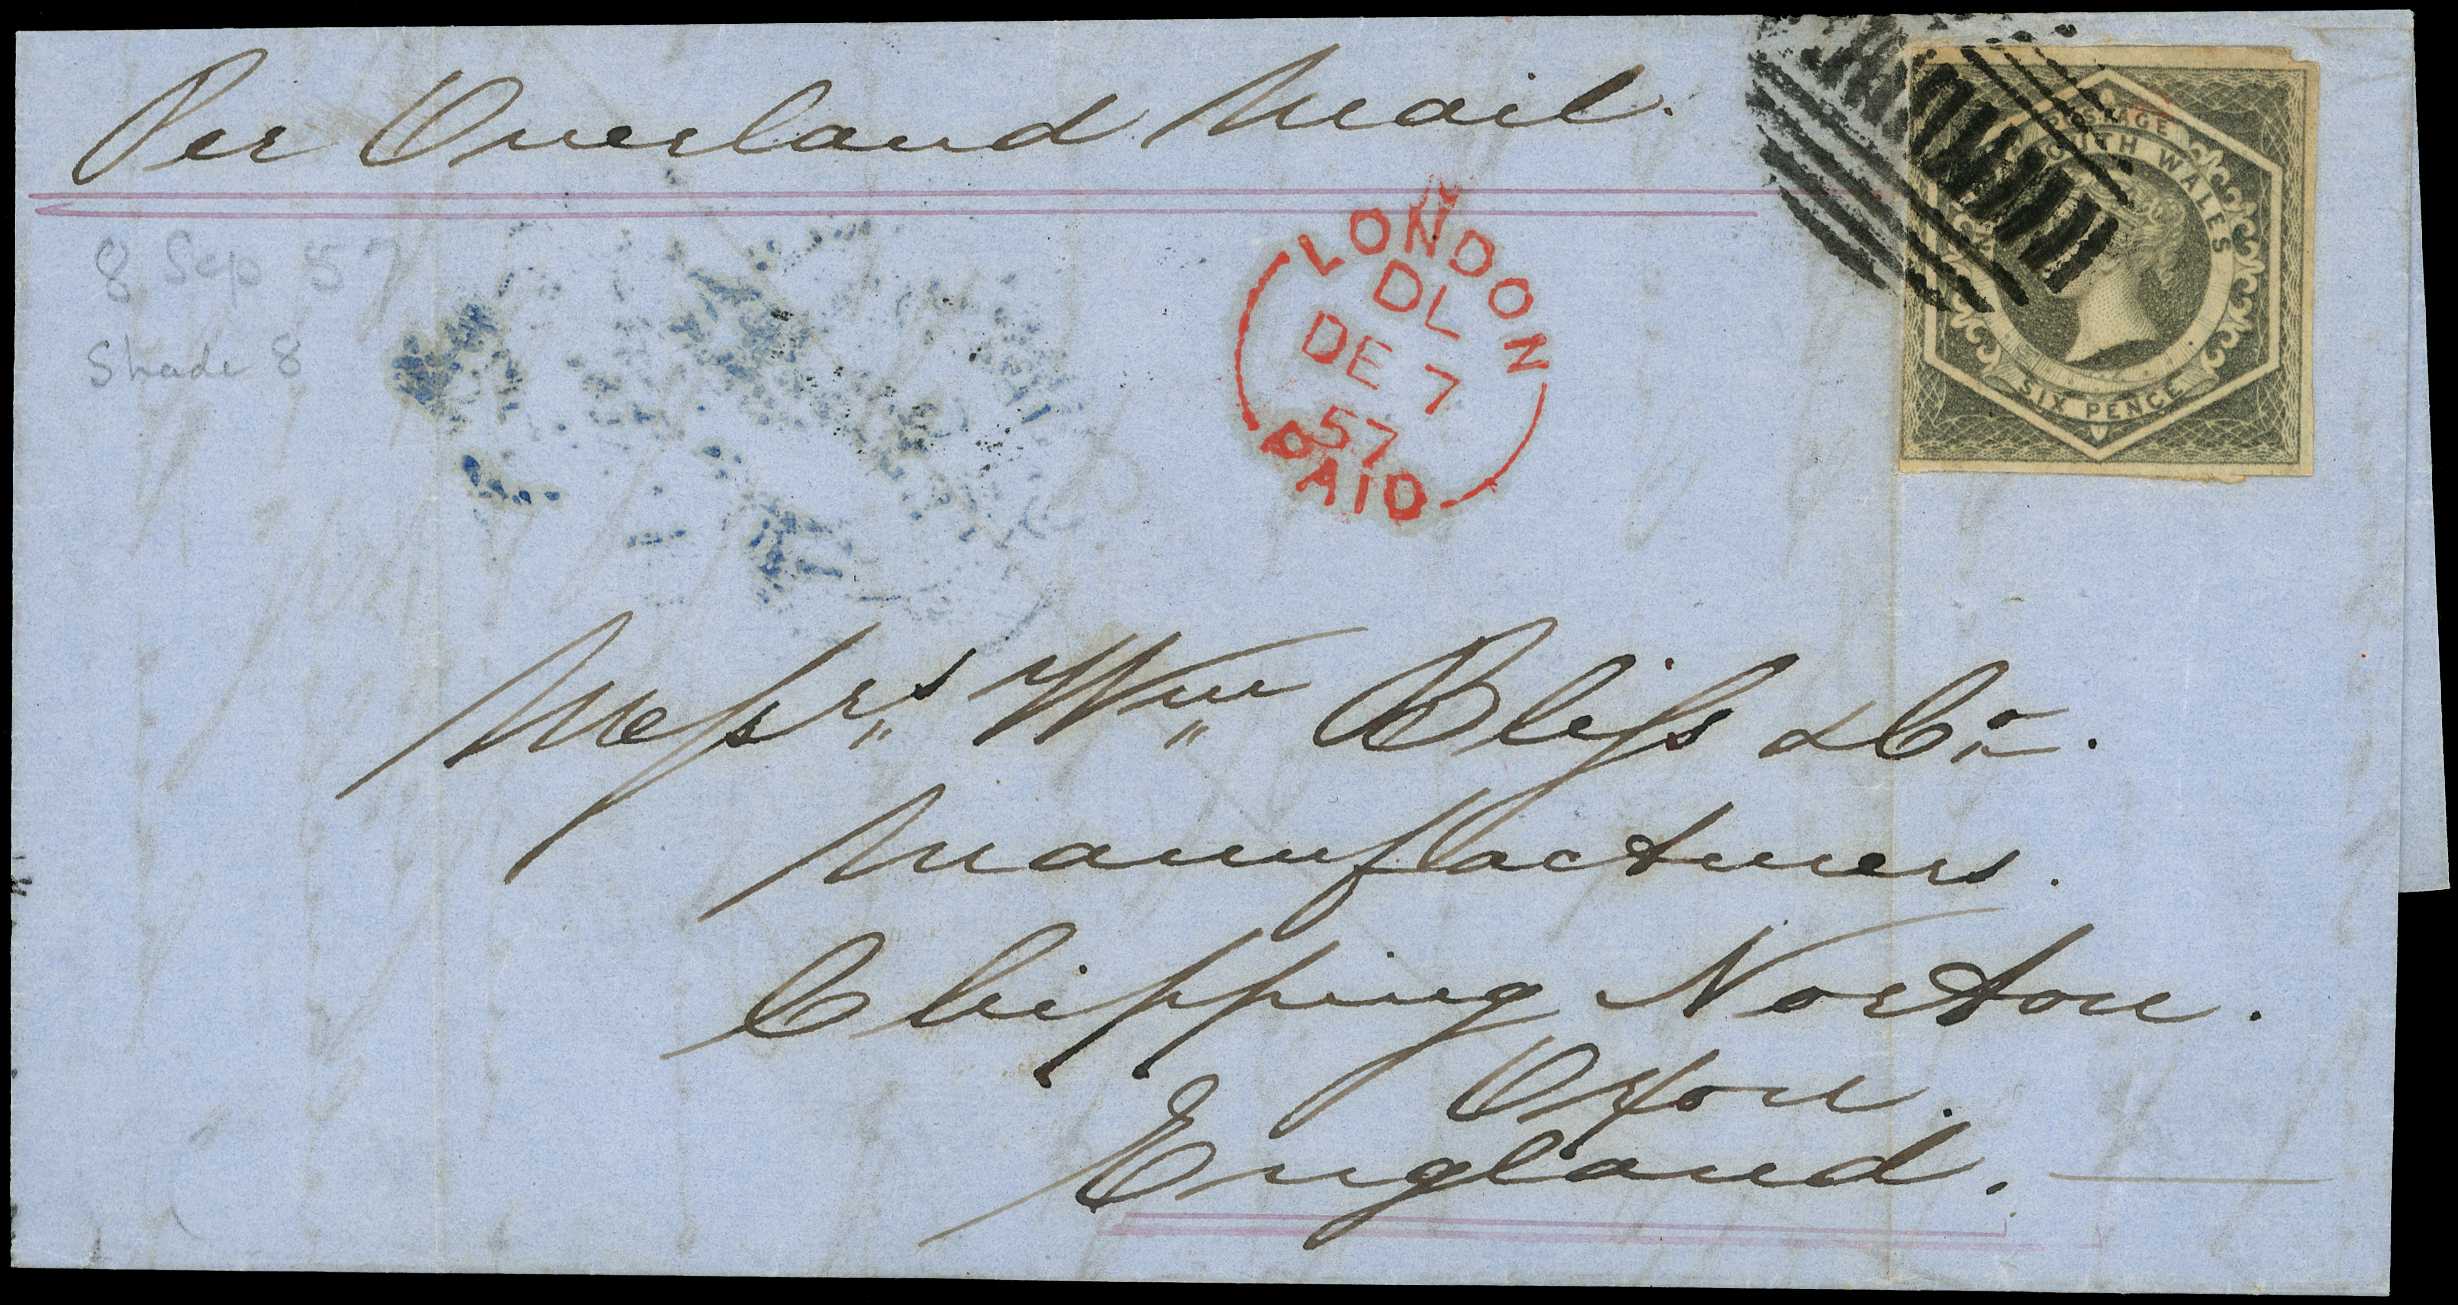 Per Overland Mail.
POSTAGE
SOUTH WALES
SIX PENCE
8 Sep 57
Shade 8
LONDON
DL
DE 7
57
PAID
Messrs Wm Bliss & Co.
Manufacturers.
Chipping Norton.
Oxon.
England.